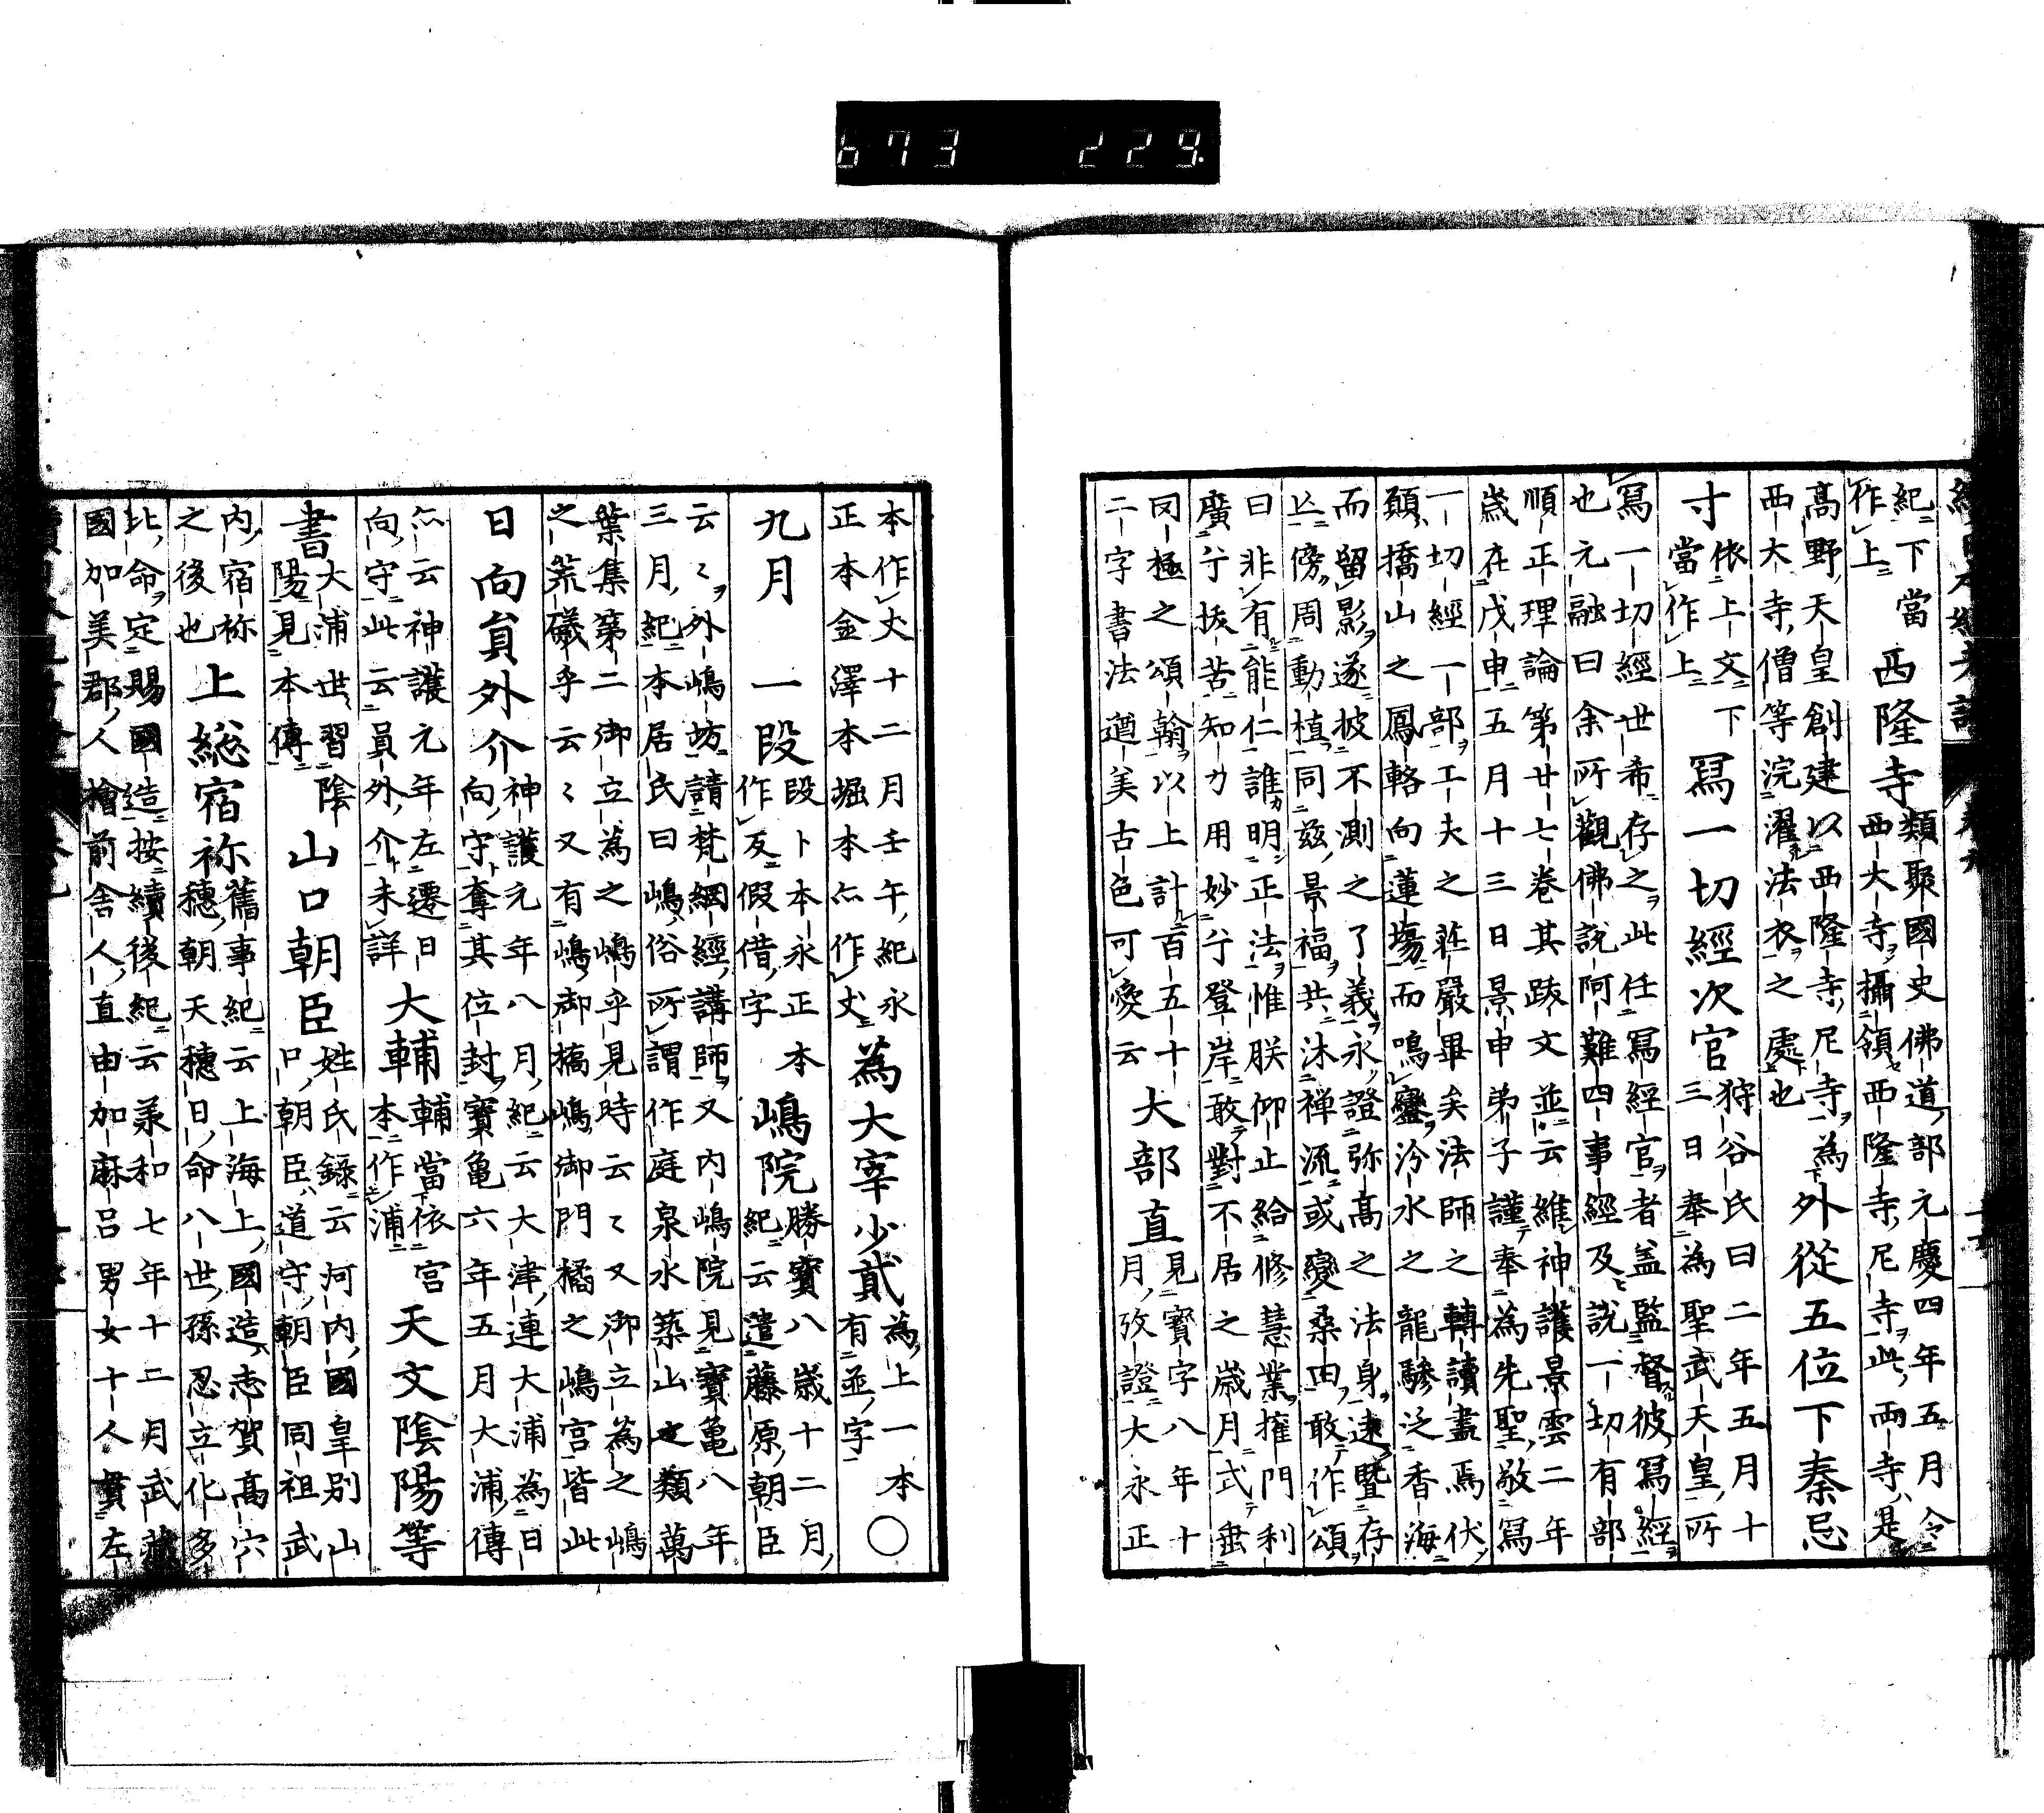 673 229.
紀下當
作上
西隆寺
類聚國史佛道部元慶四年五月令
西大寺攝領西隆寺尼寺此兩寺是
高野天皇創建以西隆寺尼寺為
西大寺僧等浣濯法衣之處也
外從五位下秦忌
寸
依上文下
當作上
寫一切經次官
狩谷氏曰二年五月十
三日奉為聖武天皇所
寫一切經世希存之此任寫經官者盖監督彼寫經
也元融曰余所觀佛說阿難四事經及說一切有部
順正理論第廿七卷其跋文並云維神護景雲二年
歲在戊申五月十三日景申弟子謹奉為先聖敬寫
一切經一部工夫之莊嚴畢矣法師之轉讀盡焉伏
願橋山之鳳輅向蓮塲而鳴鑾汾水之龍驂泛香海
而留影遂披不測之了義永證弥高之法身遠暨存
亡傍周動植同茲景福共沐禅流或變桑田敢作頌
曰非有能仁誰明正法惟朕仰止給修慧業權門利
廣兮拔苦知力用妙兮登岸敢對不居之歲月式垂
罔極之頌翰以上計百五十
二字書法遒美古色可愛云
大部直
見寶字八年十
月攷證大永正
本作𠀋十二月壬午紀永
正本金澤本堀本亦作𠀋
為大宰少貳
為上一本〇
有亟字
九月
一段
段卜本永正本
作反假借字
嶋院
勝寶八歲十二月
紀云遣藤原朝臣
云〻外嶋坊請梵網經講師又内嶋院見寶亀八年
三月紀本居氏曰嶋俗所謂作庭泉水築山之類萬
葉集第二御立為之嶋乎見時云〻又御立為之嶋
之荒礒乎云〻又有嶋御橋嶋御門橘之嶋宮皆此
日向員外介
神護元年八月紀云大津連大浦為日
向守奪其位封寶亀六年五月大浦傳
亦云神護元年左遷日
向守此云員外介未詳
大輔
輔當依宮
本作浦
天文陰陽等
書
大浦世習陰
陽見本傳
山口朝臣
姓氏錄云河内國皇別山
口朝臣道守朝臣同祖武
内宿祢
之後也
上総宿祢
舊事紀云上海上國造志賀高穴
穗朝天穗日命八世孫忍立化多
比命定賜國造按續後紀云羕和七年十二月武藏
國加美郡人檜前舎人直由加麻呂男女十人貫左